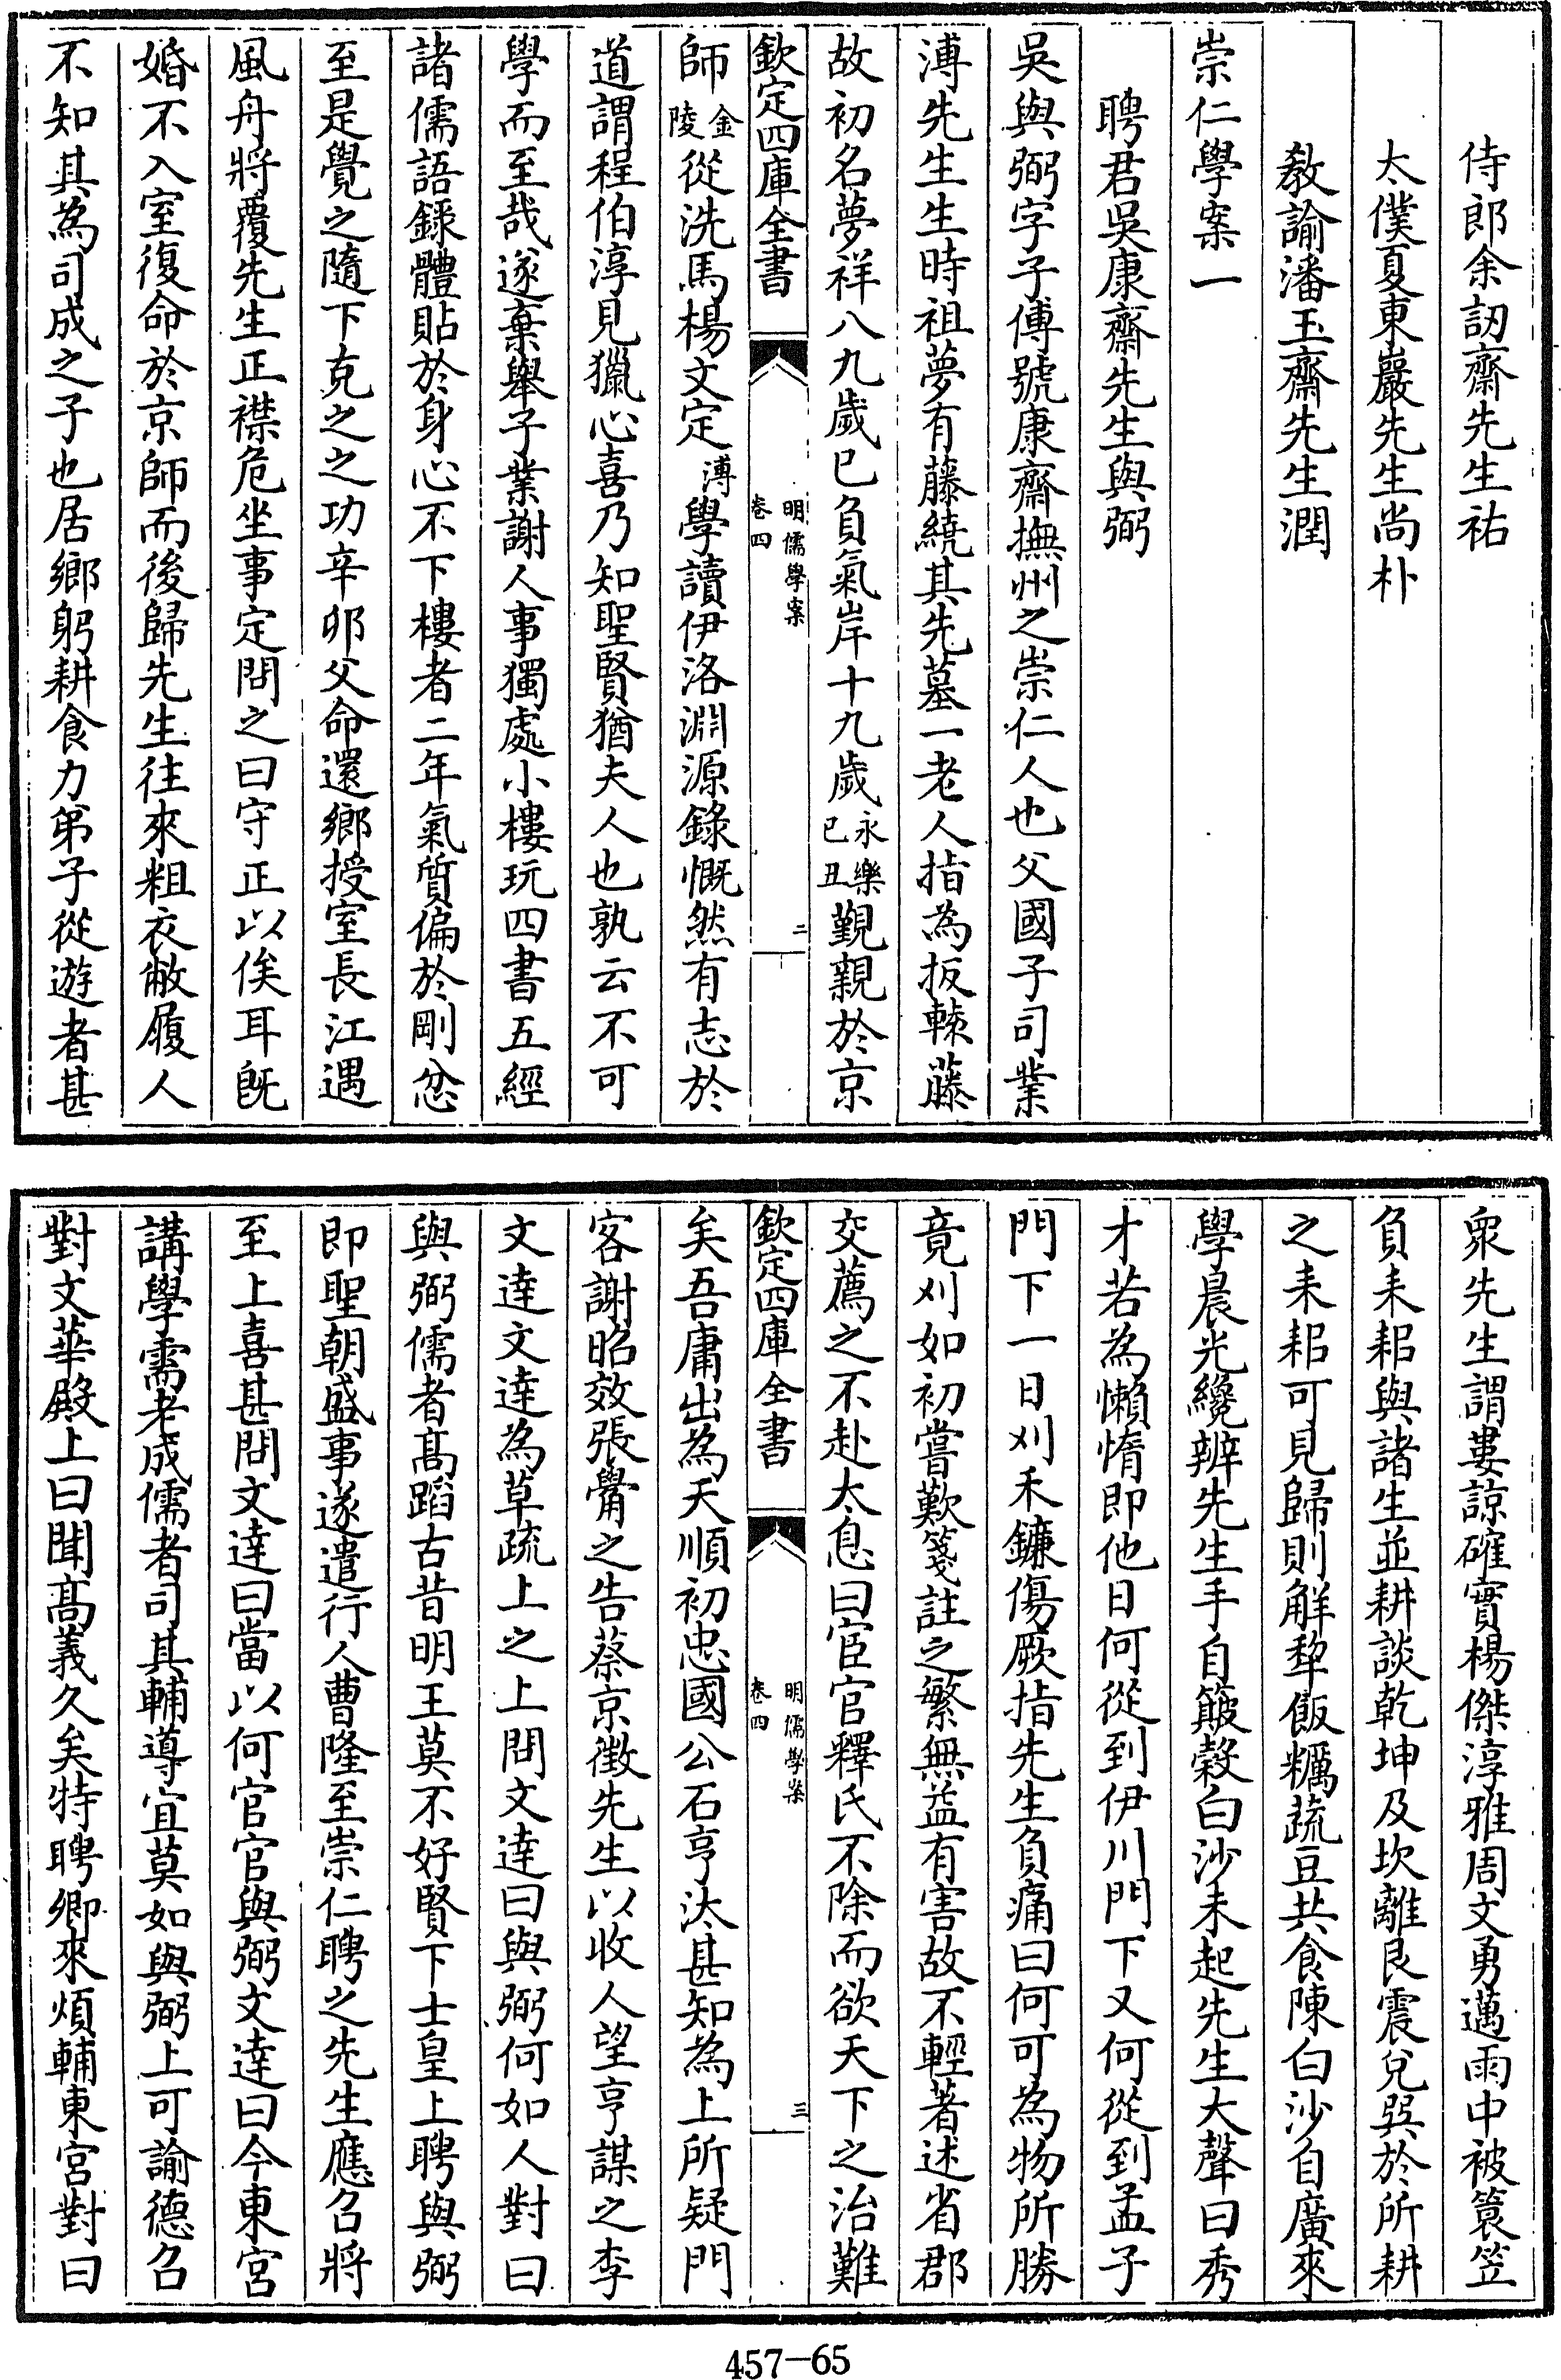 侍郎余訒齋先生祐
太僕夏東巖先生尚朴
教諭潘玉齋先生潤
崇仁學案一
聘君吳康齋先生與弼
吳與弼字子傅號康齋撫州之崇仁人也父國子司業
溥先生生時祖夢有藤繞其先墓一老人指為扳轅藤
故初名夢祥八九歲已負氣岸十九歲永樂己丑覲親於京
欽定四庫全書
明儒學案
卷四
二
師金陵從洗馬楊文定溥學讀伊洛淵源錄慨然有志於
道謂程伯淳見獵心喜乃知聖賢猶夫人也孰云不可
學而至哉遂棄舉子業謝人事獨處小樓玩四書五經
諸儒語錄體貼於身心不下樓者二年氣質偏於剛忿
至是覺之隨下克之之功辛卯父命還鄉授室長江遇
風舟將覆先生正襟危坐事定問之曰守正以俟耳既
婚不入室復命於京師而後歸先生往來粗衣敝履人
不知其為司成之子也居鄉躬耕食力弟子從遊者甚
眾先生謂婁諒確實楊傑淳雅周文勇邁雨中被簑笠
負耒耜與諸生並耕談乾坤及坎離艮震兌巽於所耕
之耒耜可見歸則解犂飯糲蔬豆共食陳白沙自廣來
學晨光纔辨先生手自簸穀白沙未起先生大聲曰秀
才若為懶惰即他日何從到伊川門下又何從到孟子
門下一日刈禾鐮傷厥指先生負痛曰何可為物所勝
竟刈如初嘗歎箋註之繁無益有害故不輕著述省郡
交薦之不赴太息曰宦官釋氏不除而欲天下之治難
欽定四庫全書
明儒學案
卷四
三
矣吾庸出為天順初忠國公石亨汰甚知為上所疑門
客謝昭效張觷之告蔡京徵先生以收人望亨謀之李
文達文達為草疏上之上問文達曰與弼何如人對曰
與弼儒者高蹈古昔明王莫不好賢下士皇上聘與弼
即聖朝盛事遂遣行人曹隆至崇仁聘之先生應召將
至上喜甚問文達曰當以何官官與弼文達曰今東宮
講學需老成儒者司其輔導宜莫如與弼上可諭德召
對文華殿上曰聞高義久矣特聘卿來煩輔東宮對曰
457-65